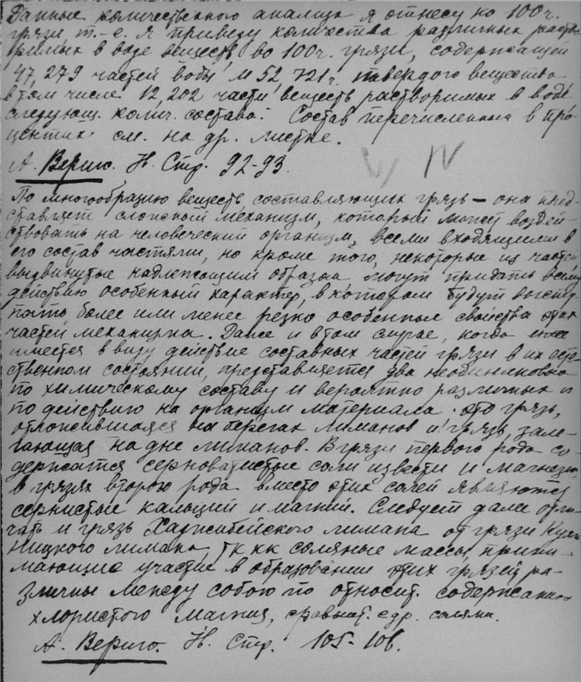 Данные количественного анализа я отнесу ко 100ч.
грязи т.-е. я приведу количества различных раство
римых в воде веществ во 100ч. грязи, содержащей
47,279 частей воды и 52,721ч. твердого вещества
в том числе 12,202 части веществ растворимых в воде
следующ. колич. состава: Состав перечисления в про
центах см. на др. листке.
А. Вериго. Н. Стр. 92-93.
IV
По многообразию веществ составляющих грязь - она пред-
ставляет сложный механизм, который может воздей
ствовать на человеческий организм, всеми входящими в
его состав частями, но кроме того, некоторые из частей
выдвинутые надлежащим образом могут придать всему
действию особенный характер, в котором будут высту
пать более или менее резко особенные свойства этих
частей механизма. Даже и в том случае, когда
имеется в виду действие составных частей грязи в их есте
ственном состоянии, представляется два неодинаковых
по химическому составу и вероятно различных и
по действию на организм материала: это грязь,
отложившаяся на берегах лиманов и грязь, зале-
гающая на дне лиманов. В грязи первого рода со-
держатся серноватистые соли извести и магнезии
в грязях второго рода вместо этих солей являются
сернистые кальций и магний. Следует даже отли-
чать и грязь Хаджибейского лимана от грязи Куяль
ницкого лимана, так как соляные массы прини-
мающие участие в образовании этих грязей ра-
зличны между собою по относит. содержанию
хлористого магния, сравнит. с др. солями.
А. Вериго. Н. Стр. 105-106.